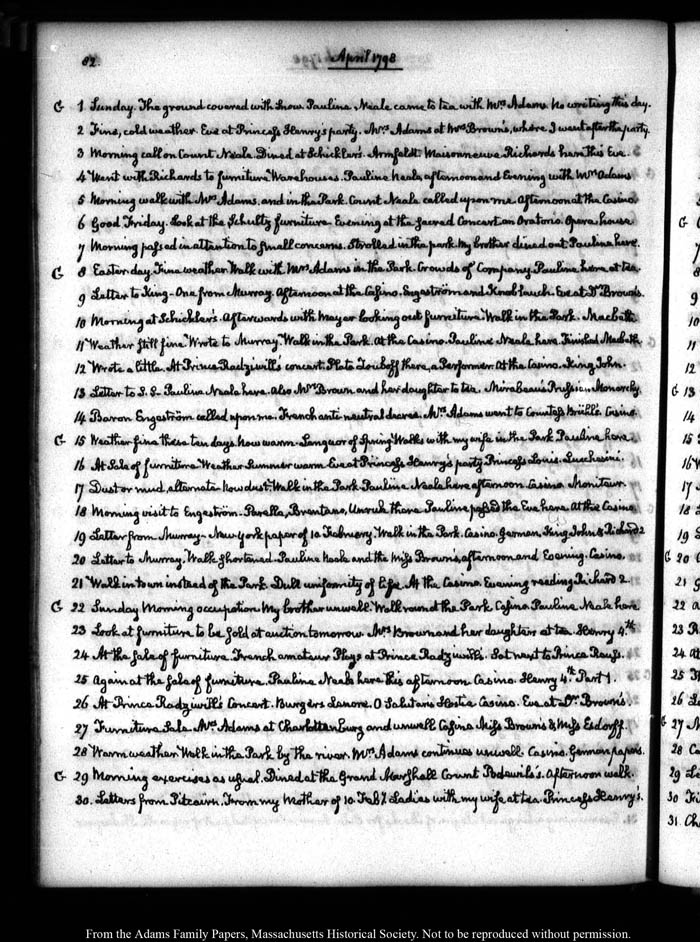 82.
April 1798
G 1 Sunday. The ground covered with Snow. Pauline Neale came to tea with Mrs Adams. No writing this day.
2 Fine, cold weather. Eve at Princess Henry's party. Mrs Adams at Mrs Brown's, where I went after the party.
3 Morning call on Count Neale. Dined at Schickler's. Armfeldt. Maisonneuve Richards here this Eve.
4 Went with Richards to furniture Warehouses. Pauline Neale, afternoon and Evening with Mrs Adams
5 Morning walk with Mrs Adams. and in the Park. Count Neale called upon me. Afternoon at the Casino.
6 Good Friday. Look at the Schultz furniture. Evening at the Sacred Concert an Oratorio. Opera house
7 Morning passed in attention to small concerns. Strolled in the park. My brother dined out. Pauline here.
G 8 Easter day. Fine weather. Walk with Mrs Adams in the Park. Crowds of Company. Pauline here at tea.
9 Letter to King. One from Murray. Afternoon at the Casino. Engeström and Knoblauch. Eve at Dr Brown's.
10 Morning at Schickler's. Afterwards with Mayer looking out furniture. Walk in the Park. Macbeth
11 Weather still fine. Wrote to Murray. Walk in the Park. At the Casino. Pauline Neale here. Finished Macbeth
12 Wrote a little. At Prince Radziwill's concert. Plato Zouboff there, a Performer. At the Casino. King John.
13 Letter to S.S. Pauline Neale here. Also Mrs Brown and her daughter to tea. Mirabeau's Prussian Monarchy.
14 Baron Engeström called upon me. French anti neutral decree. Mrs Adams went to Countess Brühl's. Casino.
G 15 Weather fine these ten days. Now warm. Languor of Spring. Walks with my wife in the Park Pauline here
16 At Sale of furniture. Weather Summer warm. Eve at Princess Henry's party. Princess Louis. Lucchesini.
17 Dust or mud, alternate. Now dust. Walk in the Park. Pauline Neale here afternoon. Casino. Moniteur.
18 Morning visit to Engeström. Parella, Brentano, Unruh there. Pauline passed the Eve here. At the Casino
19 Letter from Murray. New York paper of 10 February. Walk in the Park. Casino. German. King John & Richard 2
20 Letter to Murray. Walk shortened. Pauline Neale and the Miss Brown's, afternoon and Evening. Casino.
21 Walk in town instead of the Park. Dull uniformity of Life. At the Casino. Evening reading Richard 2.
G 22 Sunday Morning occupation. My brother unwell. Walk round the Park. Casino. Pauline Neale here
23 Look at furniture to be sold at auction tomorrow. Mrs Brown and her daughters at tea. Henry 4.th
24 At the sale of furniture. French amateur Plays at Prince Radziwill's. Sat next to Prince Reuss.
25 Again at the sale of furniture. Pauline Neale here this afternoon. Casino. Henry 4.th Part 1.
26 At Prince Radziwill's Concert. Burger's Lenore. O Salutaris Hostia. Casino. Eve at Dr Brown's
27 Furniture Sale. Mrs Adams at Charlottenburg and unwell. Casino. Miss Brown's & Miss Esdorff.
28 Warm weather. Walk in the Park by the river. Mrs Adams continues unwell. Casino. German papers.
G 29 Morning exercises as usual. Dined at the Grand Marshall Count Podewils's. Afternoon walk.
30. Letters from Pitcairn. From my Mother of 10 Feb.y Ladies with my wife at tea. Princess Henry's.
From the Adams Family Papers, Massachusetts Historical Society. Not to be reproduced without permission.